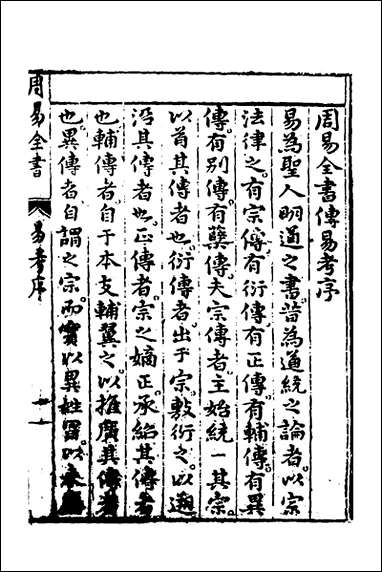 周易全書傳易考序
易為聖人明道之書昔為道統之論者以宗
法律之有宗傳有衍傳有正傳有輔傳有異
傳有別傳有孽傳夫宗傳者主始統一其宗
以首其傳者也衍傳者出于宗敷衍之以遡
沿其傳者也正傳者宗之嫡正承紹其傳者
也輔傳者自于本支輔翼之以推廣其傳者
也異傳者自謂之宗而實以異姓冒以本
周易全書
易考序